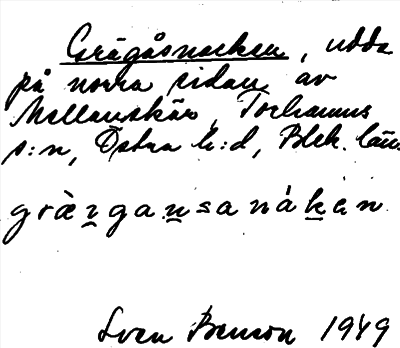 Grågåsnacken, udde
på norra sidan av
Mellanskär, Torhamns
s:n, Östra h:d, Blek. län.
græ̀n̠gan̠sanák̠en
Sven Benson 1949